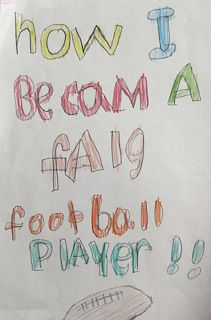 how I
Becam A
fAlg
football
PlAyer!!